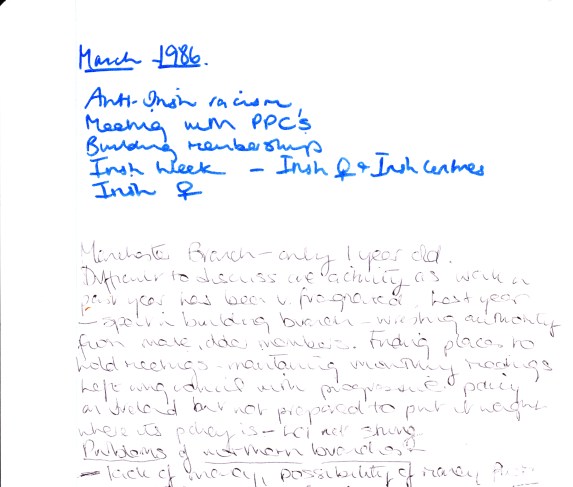 March 1986.
Anti-Irish racism,
Meeting with PPC's
Building Memberships
Irish Week - Irish ♀ + Irish Centres
Irish ♀
Manchester Branch - only 1 year old.
Difficult to discuss activity as work in
past year has been v. fragmented. Last year
- spent in building branch - wresting authority
from male, older members. Finding places to
hold meetings - maintaining monthly meetings
left wing council with progressive policy
on Ireland but not prepared to put its weight
where its policy is - not strong
Problems of northern branches
- lack of possibility of many